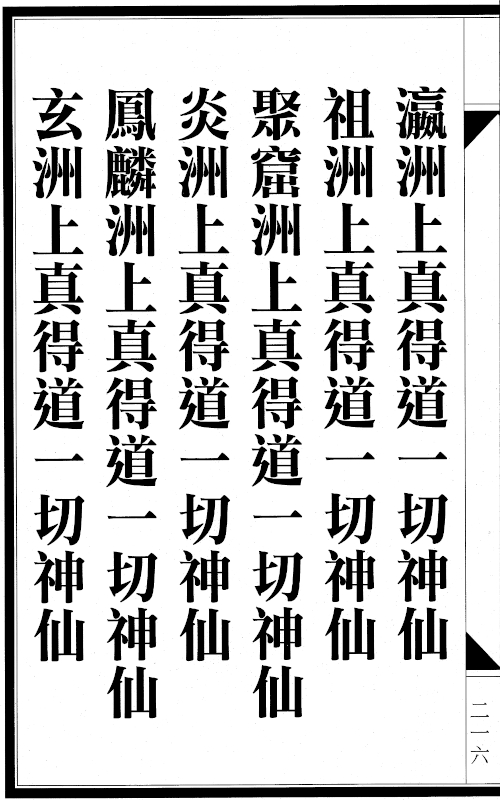 瀛洲上真得道一切神仙
祖洲上真得道一切神仙
聚窟洲上真得道一切神仙
炎洲上真得道一切神仙
鳳麟洲上真得道一切神仙
玄洲上真得道一切神仙
二一六